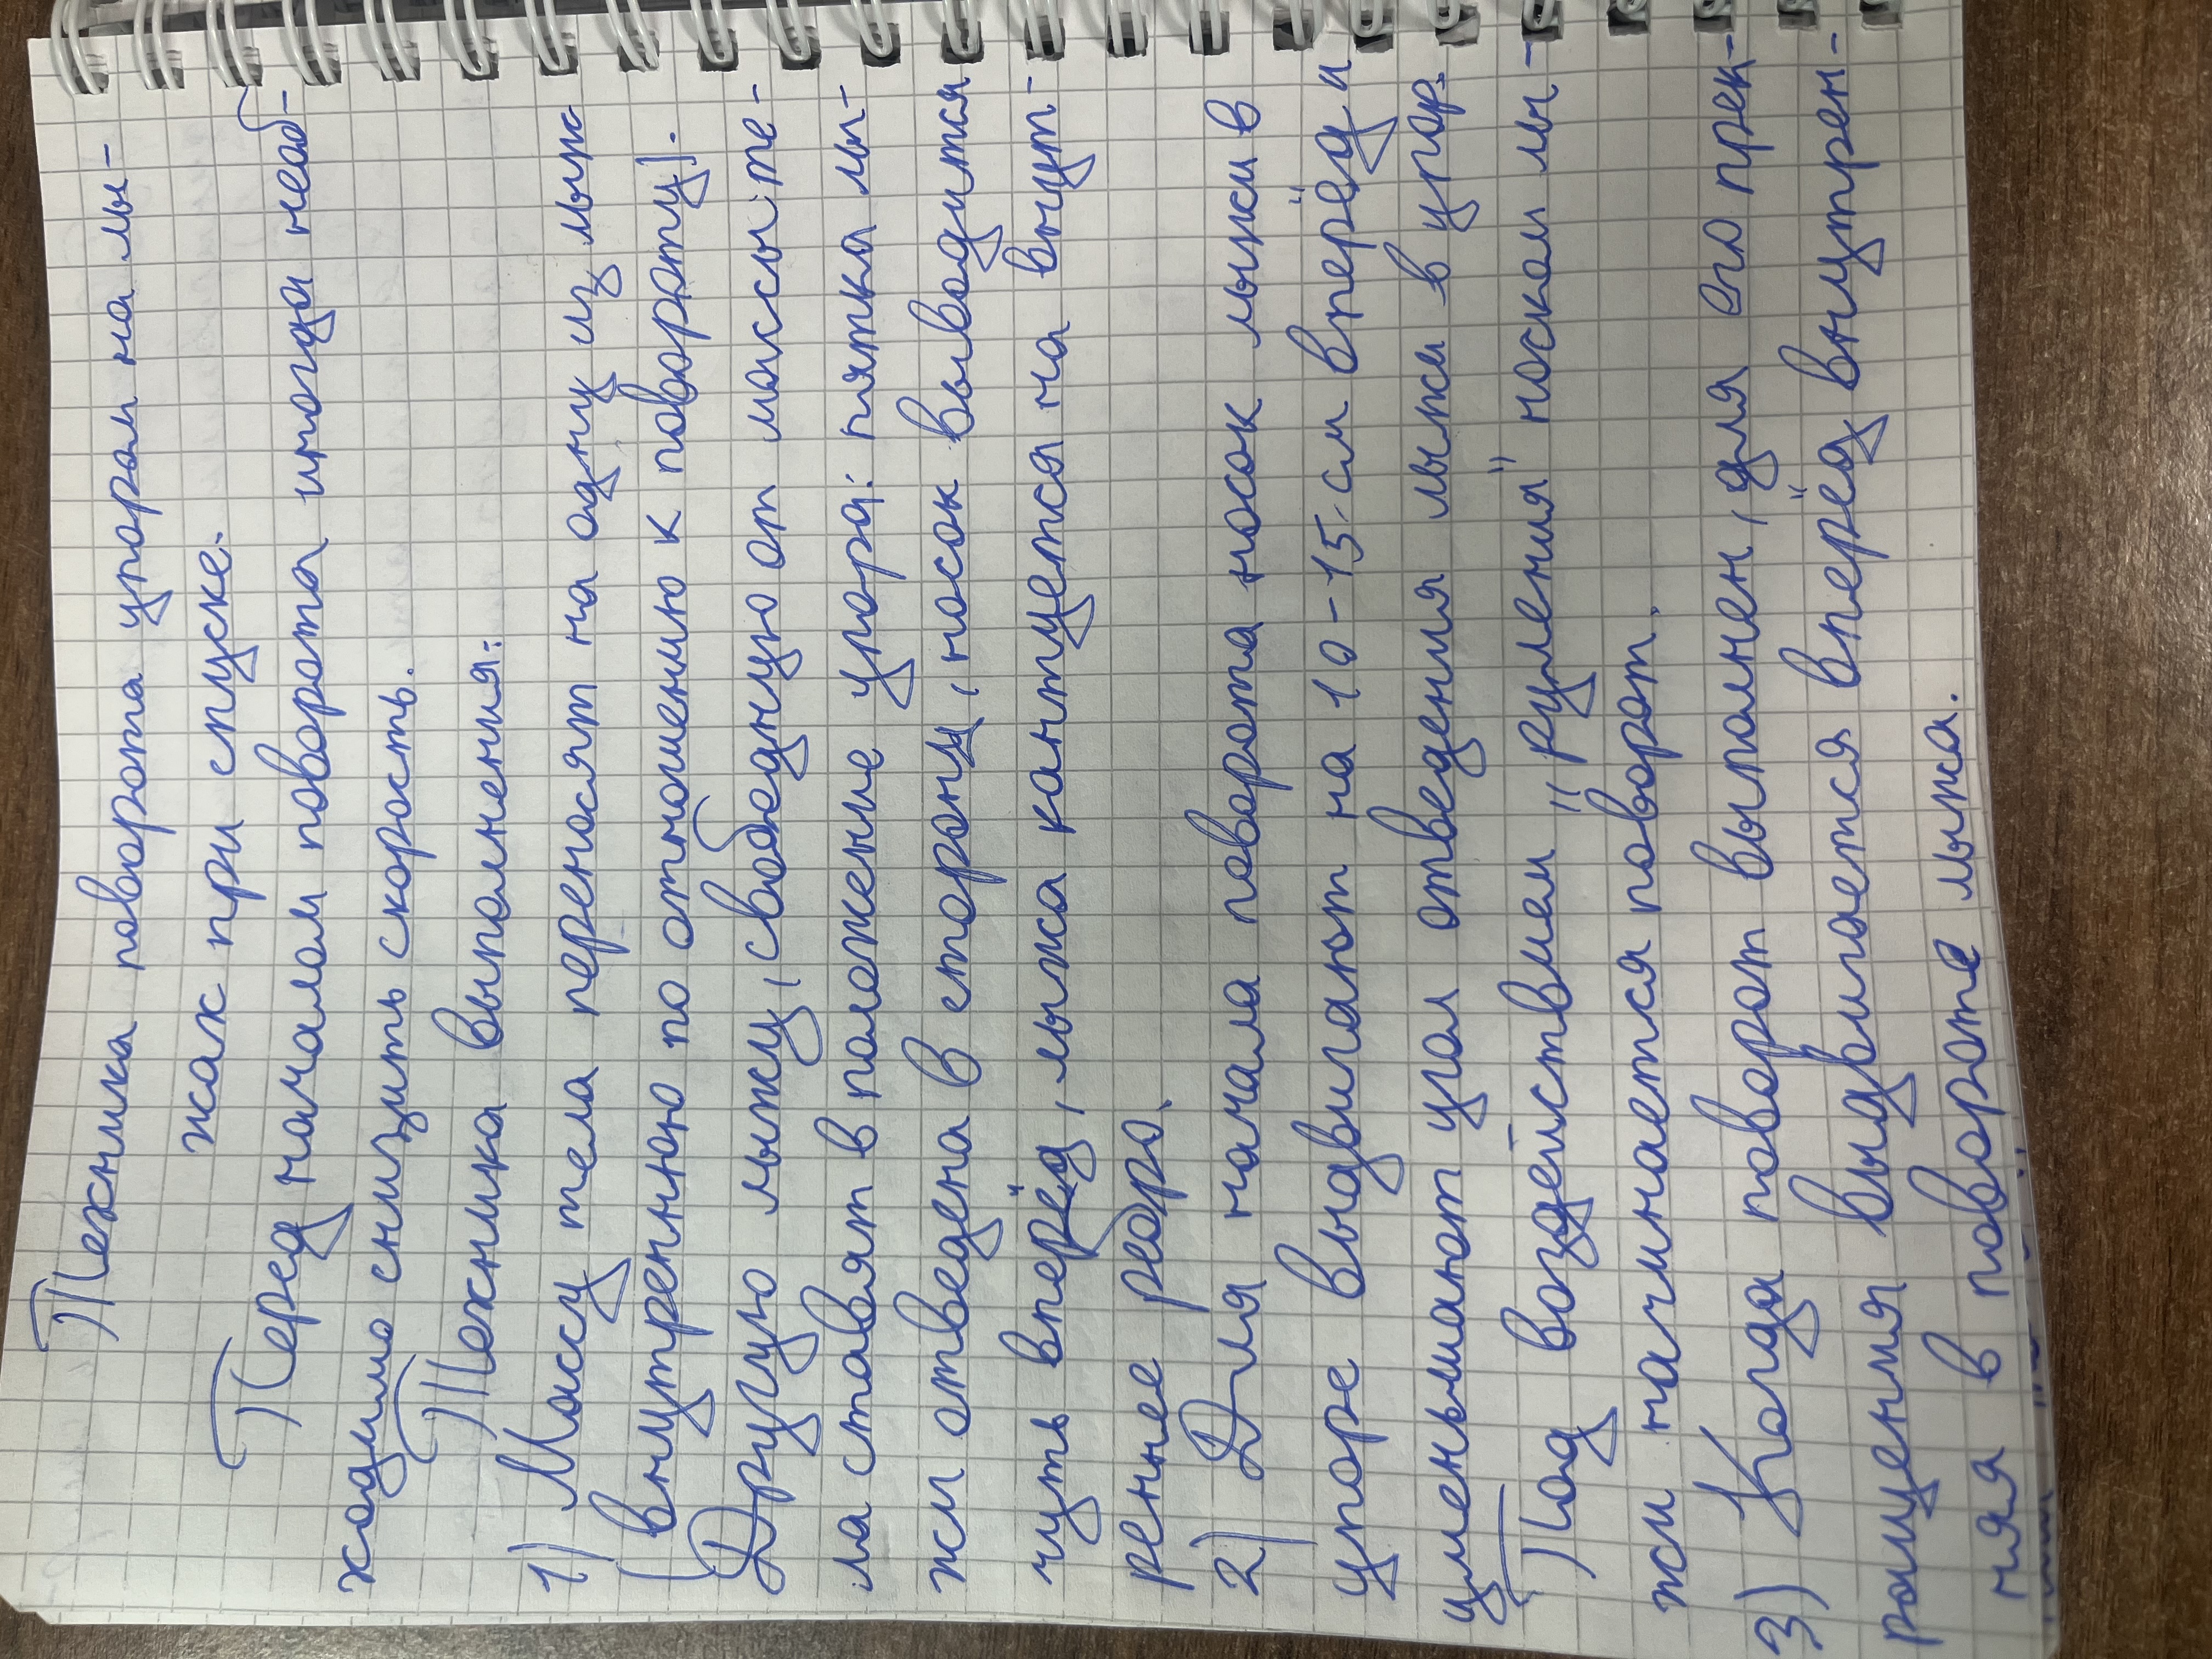 Техника поворота упором на лы-
жах при спуске.
Перед началом поворота иногда необ-
ходимо снизить скорость.
Техника выполнения:
1) Массу тела переносят на одну из лыж
(внутреннюю по отношению к повороту).
Другую лыжу, свободную от массы те-
ла ставят в положение упора: пятка лы-
жи отведена в сторону, носок выводится
чуть вперёд, лыжа кантуется на внут-
реннее ребро.
2) Для начала поворота носок лыжи в
упоре выдвигают на 10-15 см вперёд и
уменьшают угол отведения лыжи в упор.
Под воздействием "руления" носком лы-
жи начинается поворот.
3) Когда поворот выполнен, для его прек-
ращения выдвигается вперёд внутрен-
няя в повороте лыжа.